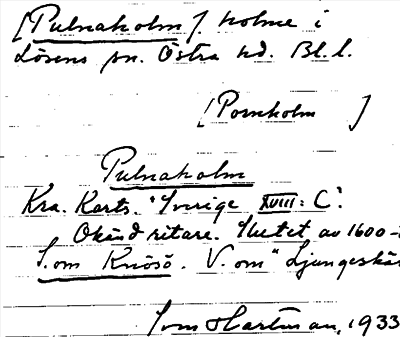 [Pulnaholm]. holme i
Lösens sn. Östra hd. Bl. l.
[Pornholm ]
Pulnaholm
Kra. Karts. "Sverige XVIII: C".
Okänd ritare. Slutet av 1600-
S. om Knösö. V. om "Ljungeskär
Tom Hartman, 1933